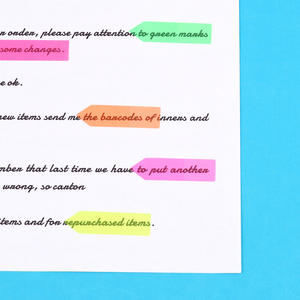 r order, please pay attention to green marks
some changes.
e ok.
new items send me the barcodes of inners and
mber that last time we have to put another
wrong, so carton
items and for repurchased items.